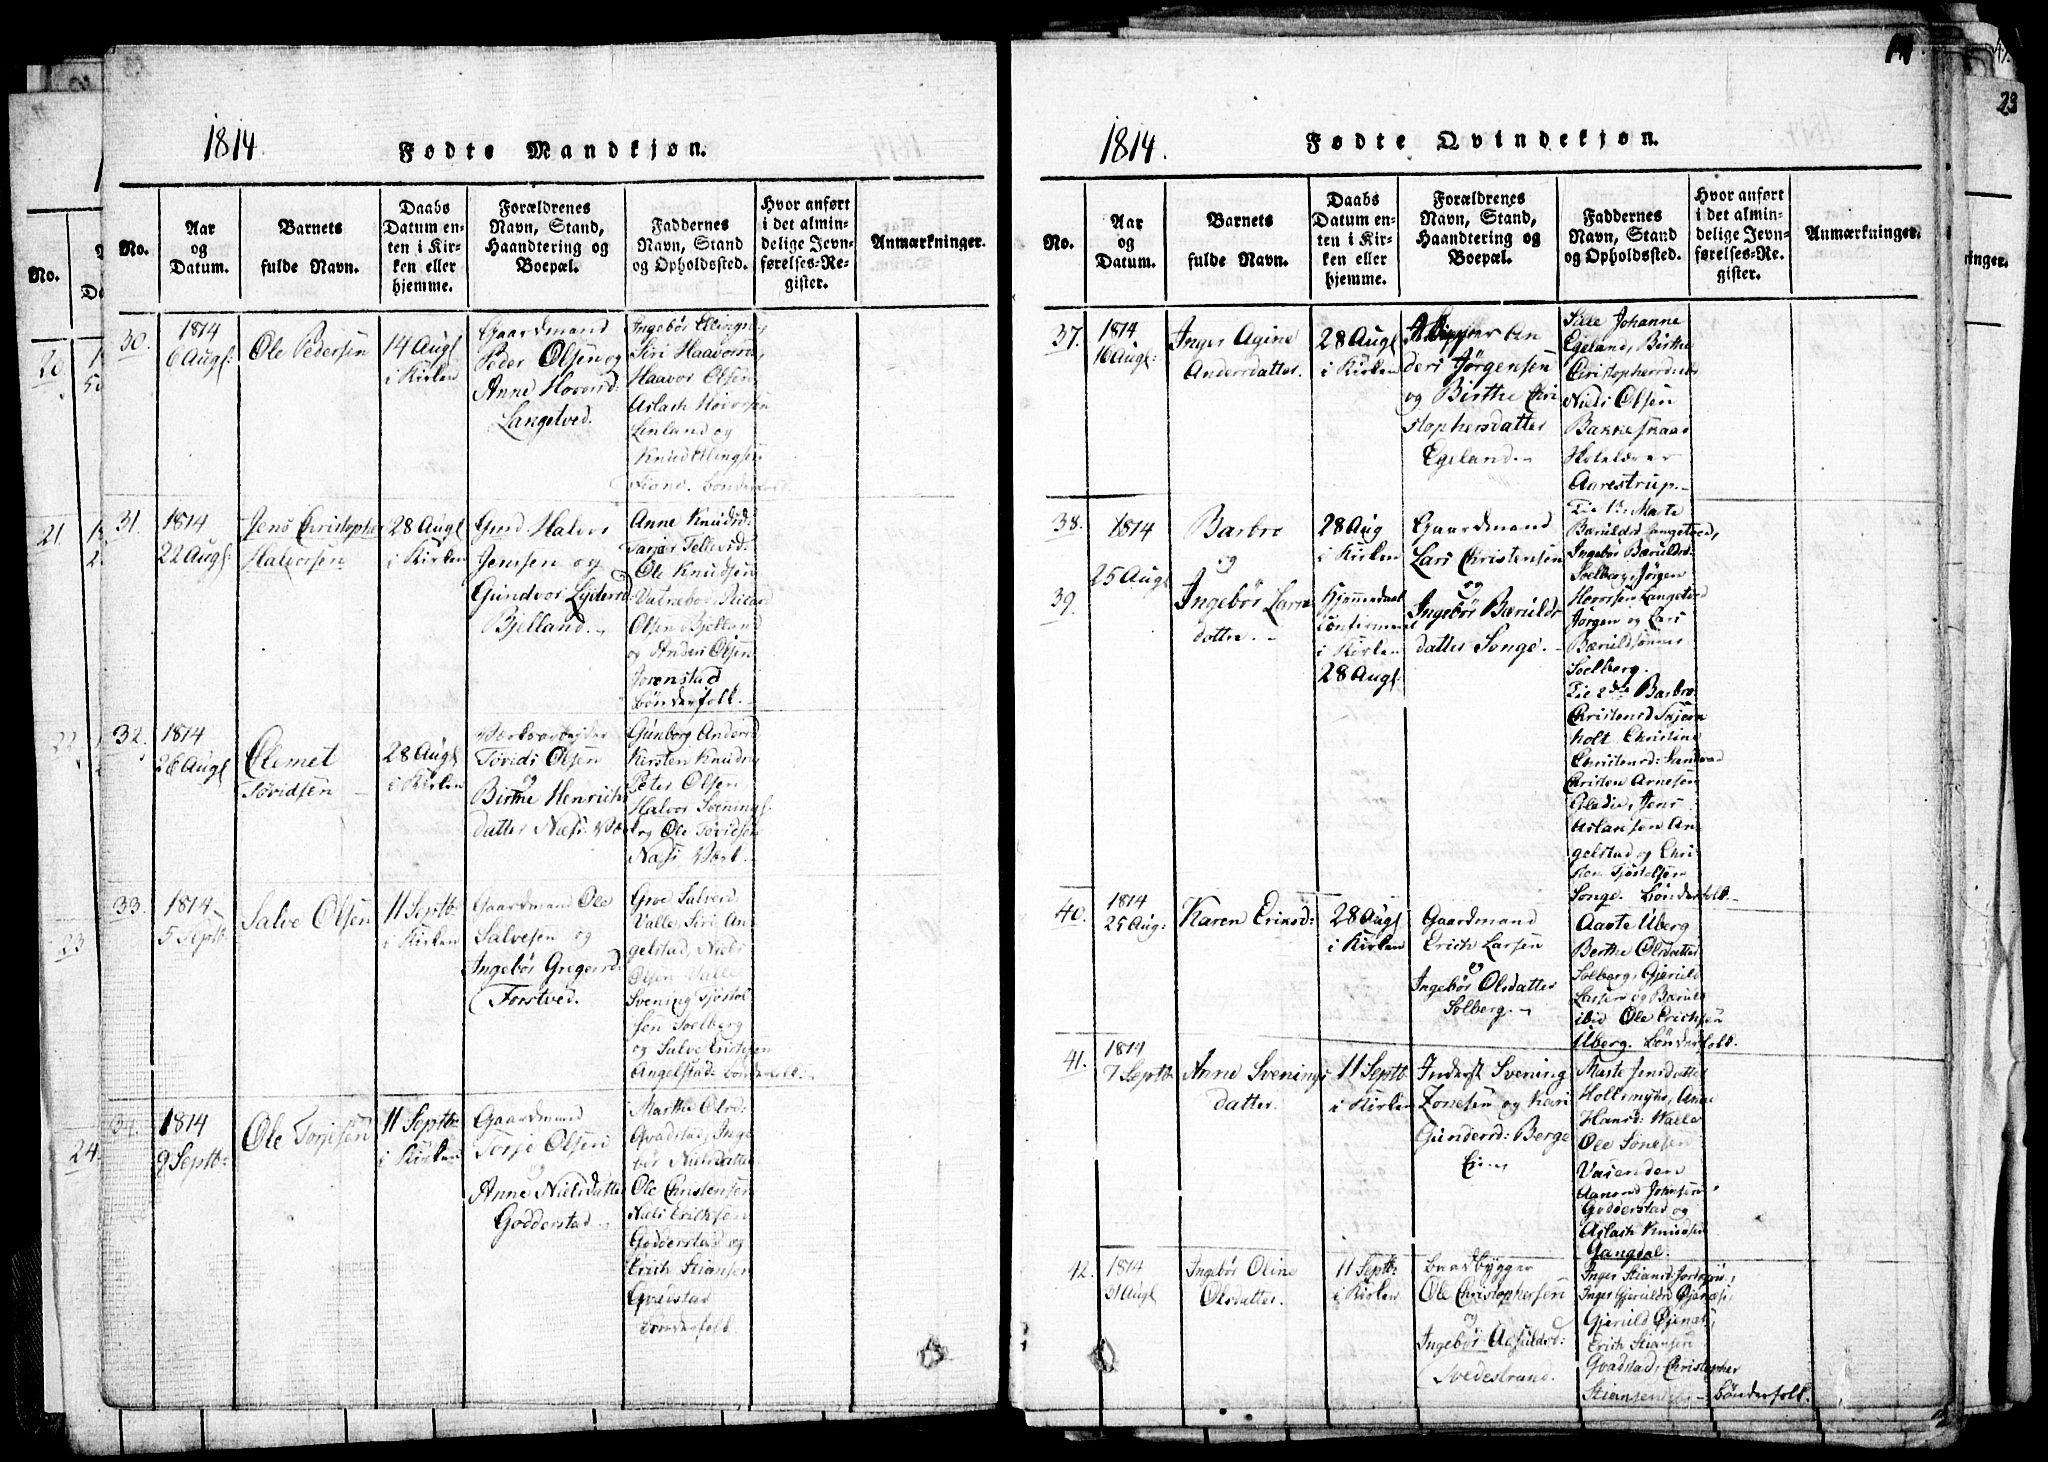 1814.
Fødte Mandkjøn.
No.
Aar
og
Datum.
Barnets
fulde Navn.
Daabs
Datum en-
ten i Kir-
ken eller
hjemme.
Forældrenes
Navn, Stand,
Haandtering og
Boepæl.
Faddernes
Navn, Stand
og Opholdssted.
Hvor anført
i det almin-
delige Jevn-
førelses-Re-
gister.
Anmærkninger.
30.
1814
6 Augs:
Ole Pedersen
14 Augs
i Kirken
Gaardmand
Peder Olsen og
Anne Hovorsd:
Langetved.
Ingebør Ellingsd,
Siri Haavorsd,
Haavor Olsen,
Aslach Hovorsen
Linland og
Knud Ellingsen
Bønderfolk.
31.
1814
22 Augs:
Jens Christopher
Halvorsen
28 Augs
i Kirken
Gmd Halvor
Jensen og
Gundvor Lyders d:
Bjelland.
Anne Knudsd:
Tarjer Tellevsd:
Ole Knudsen
Olsen Bjelland
og Anders Olsen
Jorenstad
Bønderfolk.
32.
1814
26 Augs
Clemet
Tovidsen
28 Augs
i Kirken
Værksarbeider
Tovids Olsen
og
Birthe Henrichs
datter Næss Værk
Gunborg Andersd
Kirsten Knudsd,
Peter Olsen
Halvor Svenings:
og Ole Tovidsen
Næss Værk.
33.
1814
5 Septb:
Salve Olsen
11 Septb:
i Kirken
Gaardmand Ole
Salvesen og
Ingebør Gregersd:
Torstved.
Groe Salvesd
Valle, Siri An-
gelstad, Niels
Olsen Valle
Svening Tjøstol
sen Soelberg
og Salve Erichsen
Angelstad: Bønderfolk.
34.
1814
9 Septb:
Ole Torjesen
11 Septb:
i Kirken
Gaardmand
Torje Olsen
og
Anne Nielsdatter
Godderstad
Marthe Olsd:
Qvadstad, Inge
bør Nielsdatter
Ole Christensen
Niels Erichsen
Godderstad og
Erich Stiansen
Qvadstad
Bønderfolk.
1814.
Fødte Qvindekjøn.
No.
Aar
og
Datum.
Barnets
fulde Navn.
Daabs
Datum en-
ten i Kir-
ken eller
hjemme.
Forældrenes
Navn, Stand,
Haandtering og
Boepæl.
Faddernes
Navn, Stand
og Opholdssted.
Hvor anført
i det almin-
delige Jevn-
førelses-Re-
gister.
Anmærkninger.
37.
1814
16 Augs:
Inger Agine
Andersdatter.
28 Augs
i Kirken
Skipper An
ders Jørgensen
og Birthe Chri
stophersdatter
Egeland.
Sille Johanne
Egeland, Birthe
Christophersdatter
Niels Olsen
Bakkeskaas
Skolelærer
Aarestrup.
38.
39.
1814
25 Augs
Barbro
og
Ingebør Lars
datter.
28 Aug
i Kirken
Hjemmedaab
Confirmeret
i Kirken
28 Augs
Gaardmand
Lars Christensen
og
Ingebør Bærulds
datter Songe.
Til 1ste Marte
Bæruldsd Langetved,
Ingebør Bæruldsd:
Soelberg, Jørgen
Hovorsen Langetved
Jørgen og Lars
Bæruldsønner
Soelberg.
Til 2den Barbro
Christensd Skjern
holt Christine
Christensd: Sandvad
Christen Arnesen
Gledie, Jens
Aslaksen An-
gelstad og Chri-
sten Tjøstelsen
Songe. Bønderfolk.
40.
1814
25 Aug:
Karen Eriksd:
28 Augs
i Kirken
Gaardmand
Erich Larsen
og
Ingebør Olsdatter
Solberg.
Aaste Uberg
Berthe Olsdatter
Solberg, Gjeruld
Larsen og Bæruld
ibid Ole Erichsen
Uberg. Bønderfolk.
41.
1814
7 Septb
Anne Svenings
datter.
11 Septb
i Kirken
Inderst Svening
Zonesen og Kari
Gundersd: Berge
Ei
Marte Jensdatter
Hollsmyhr, Anne
Hansd: Walle
Ole Sonesen
Vaienden
Aanond Johnsen
Godderstad og
Aslach Knudsen
Gangdal.
42.
1814
31 Augs
Ingebør Oline
Olsdatter.
11 Septb:
i Kirken
Baadbygger
Ole Christophersen
og
Ingebør Aasuldsd:
Svedestrand.
Inger Stiansd
Inger Gjeruldsd Øjenæs,
Gjeruld Øjenæs,
Erich Stiansen
Qvadstad, Christopher
Stiansen Bønderfolk.
23
20.
21.
22.
23
24.